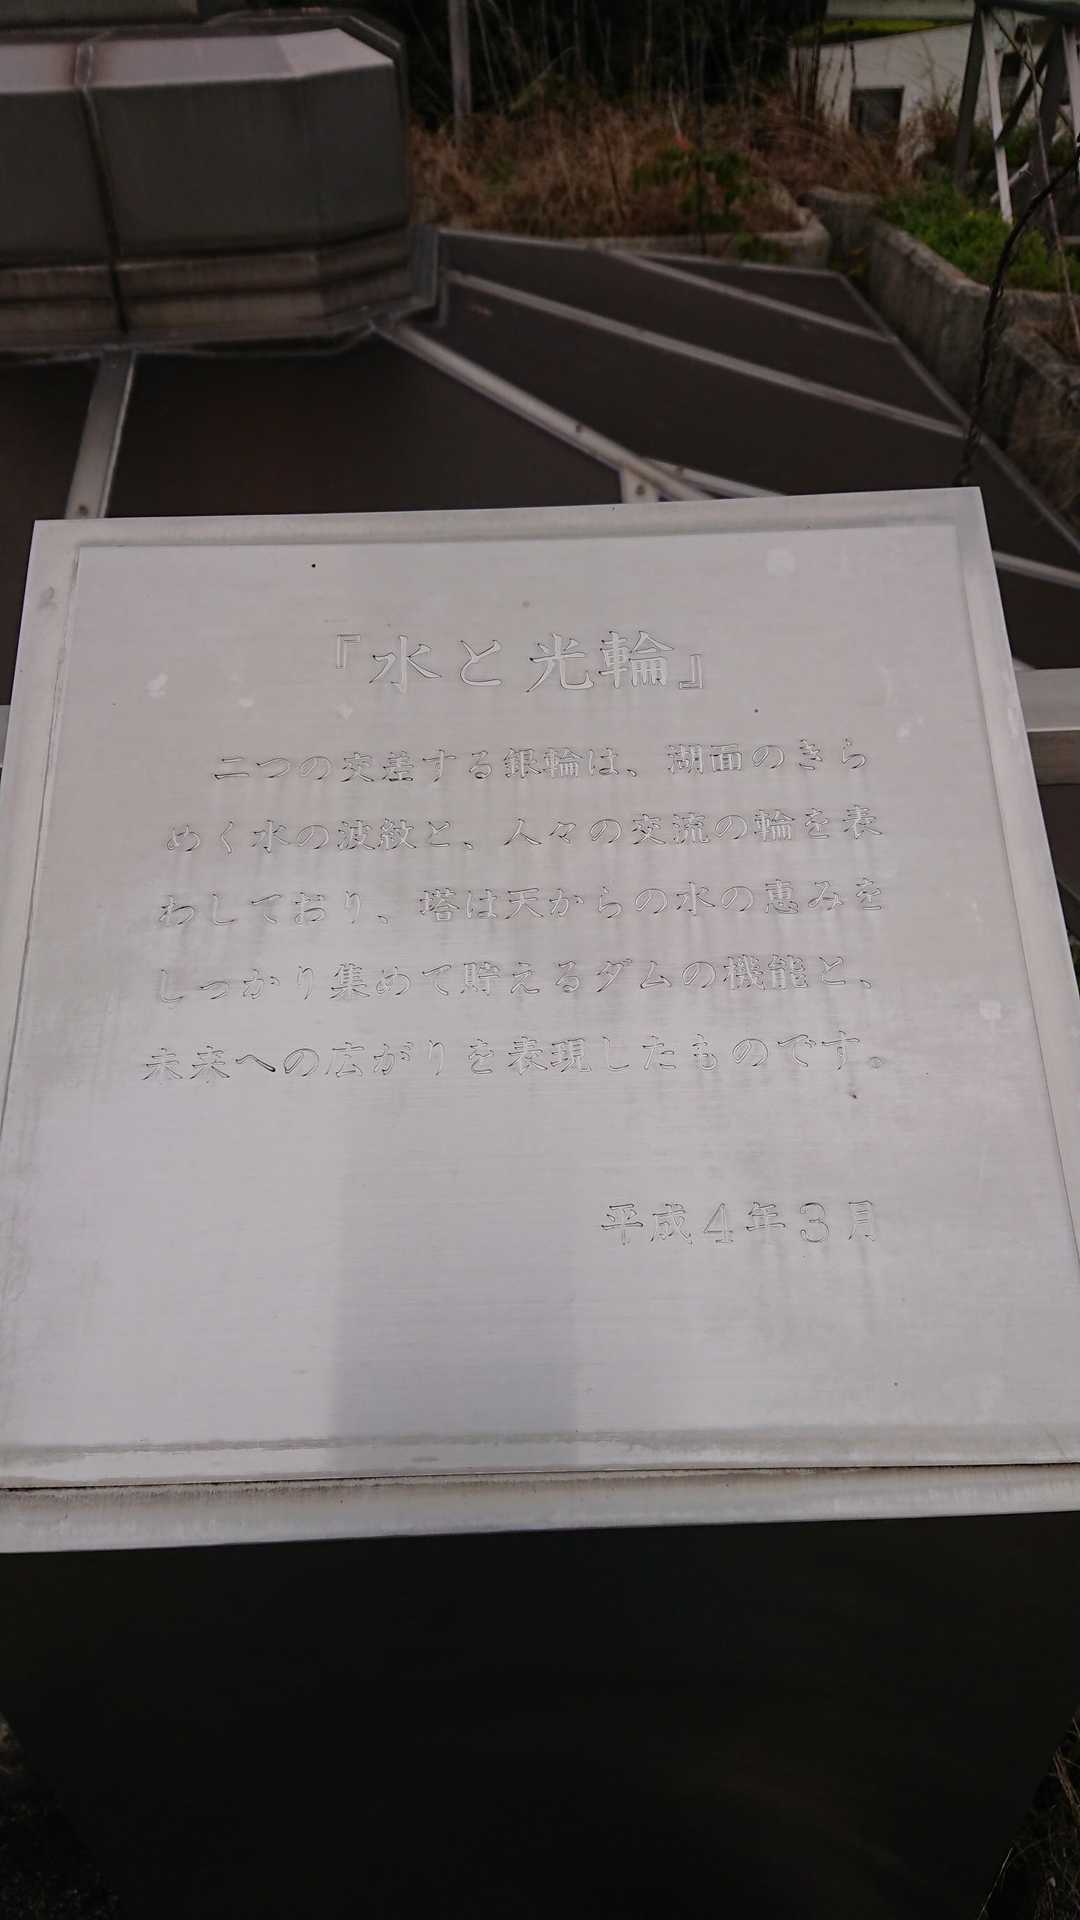 『水と光輪』
二つの交差する銀輪は、湖面のきら
めく水の波紋と、人々の交流の輪を表
わしており、塔は天からの水の恵みを
しっかり集めて貯えるダムの機能と、
未来への広がりを表現したものです。
平成4年3月